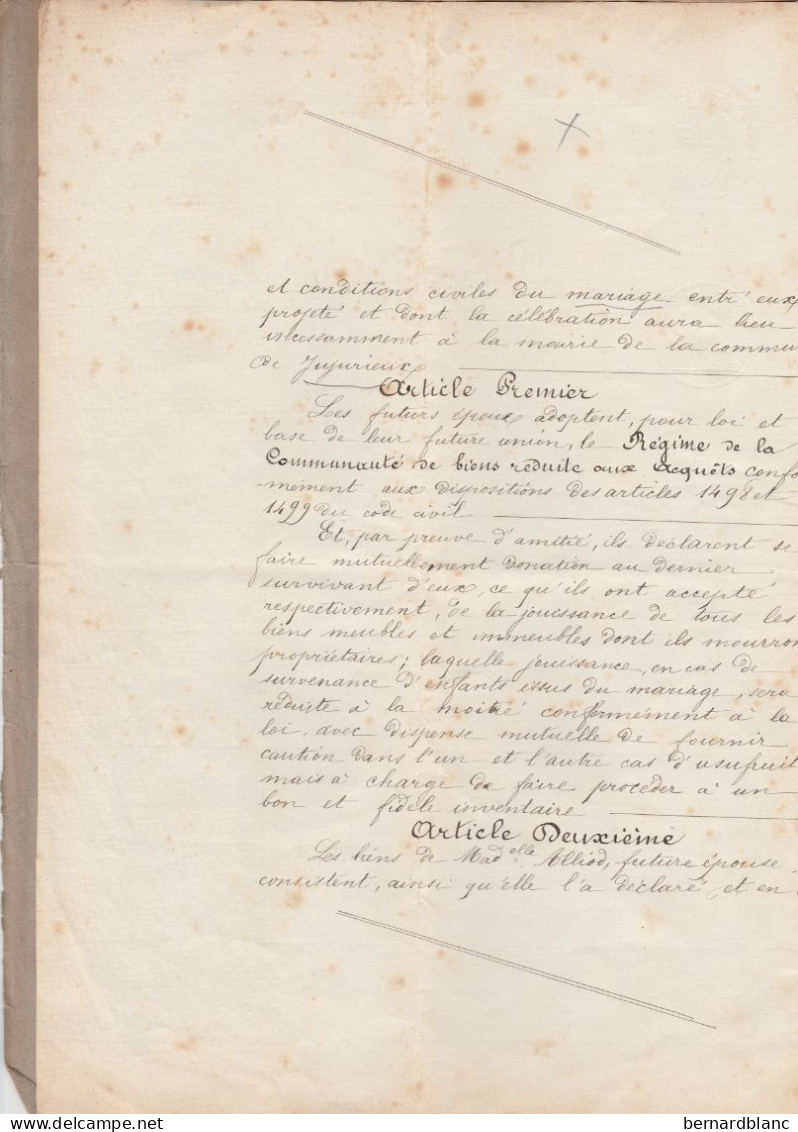 et conditions civiles du mariage entr'eux
projeté et dont la célébration aura lieu
incessamment à la mairie de la commu
de Jujurieux
Article Premier
Les futurs époux adoptent, pour loi et
base de leur future union, le Régime de la
Communauté de biens réduite aux acquêts confo
-mément aux dispositions des articles 1498 et
1499 du code civil
Et, par preuve d'amitié, ils déclarent se
faire mutuellement donation au dernier
survivant d'eux, ce qu'ils ont accepté
respectivement, de la jouissance de tous les
biens meubles et immeubles dont ils mourron
propriétaires; laquelle jouissance, en cas de
survenance d'enfants issus du mariage, sera
réduite à la moitié conformément à la
loi, avec dispense mutuelle de fournir
caution dans l'un et l'autre cas d'usufruit
mais à charge de faire procéder à un
bon et fidèle inventaire
Article Deuxième
Les biens de Mad.elle Alliod, future épouse
consistent, ainsi qu'elle l'a déclaré, et en
delcampe.net
bernardblanc